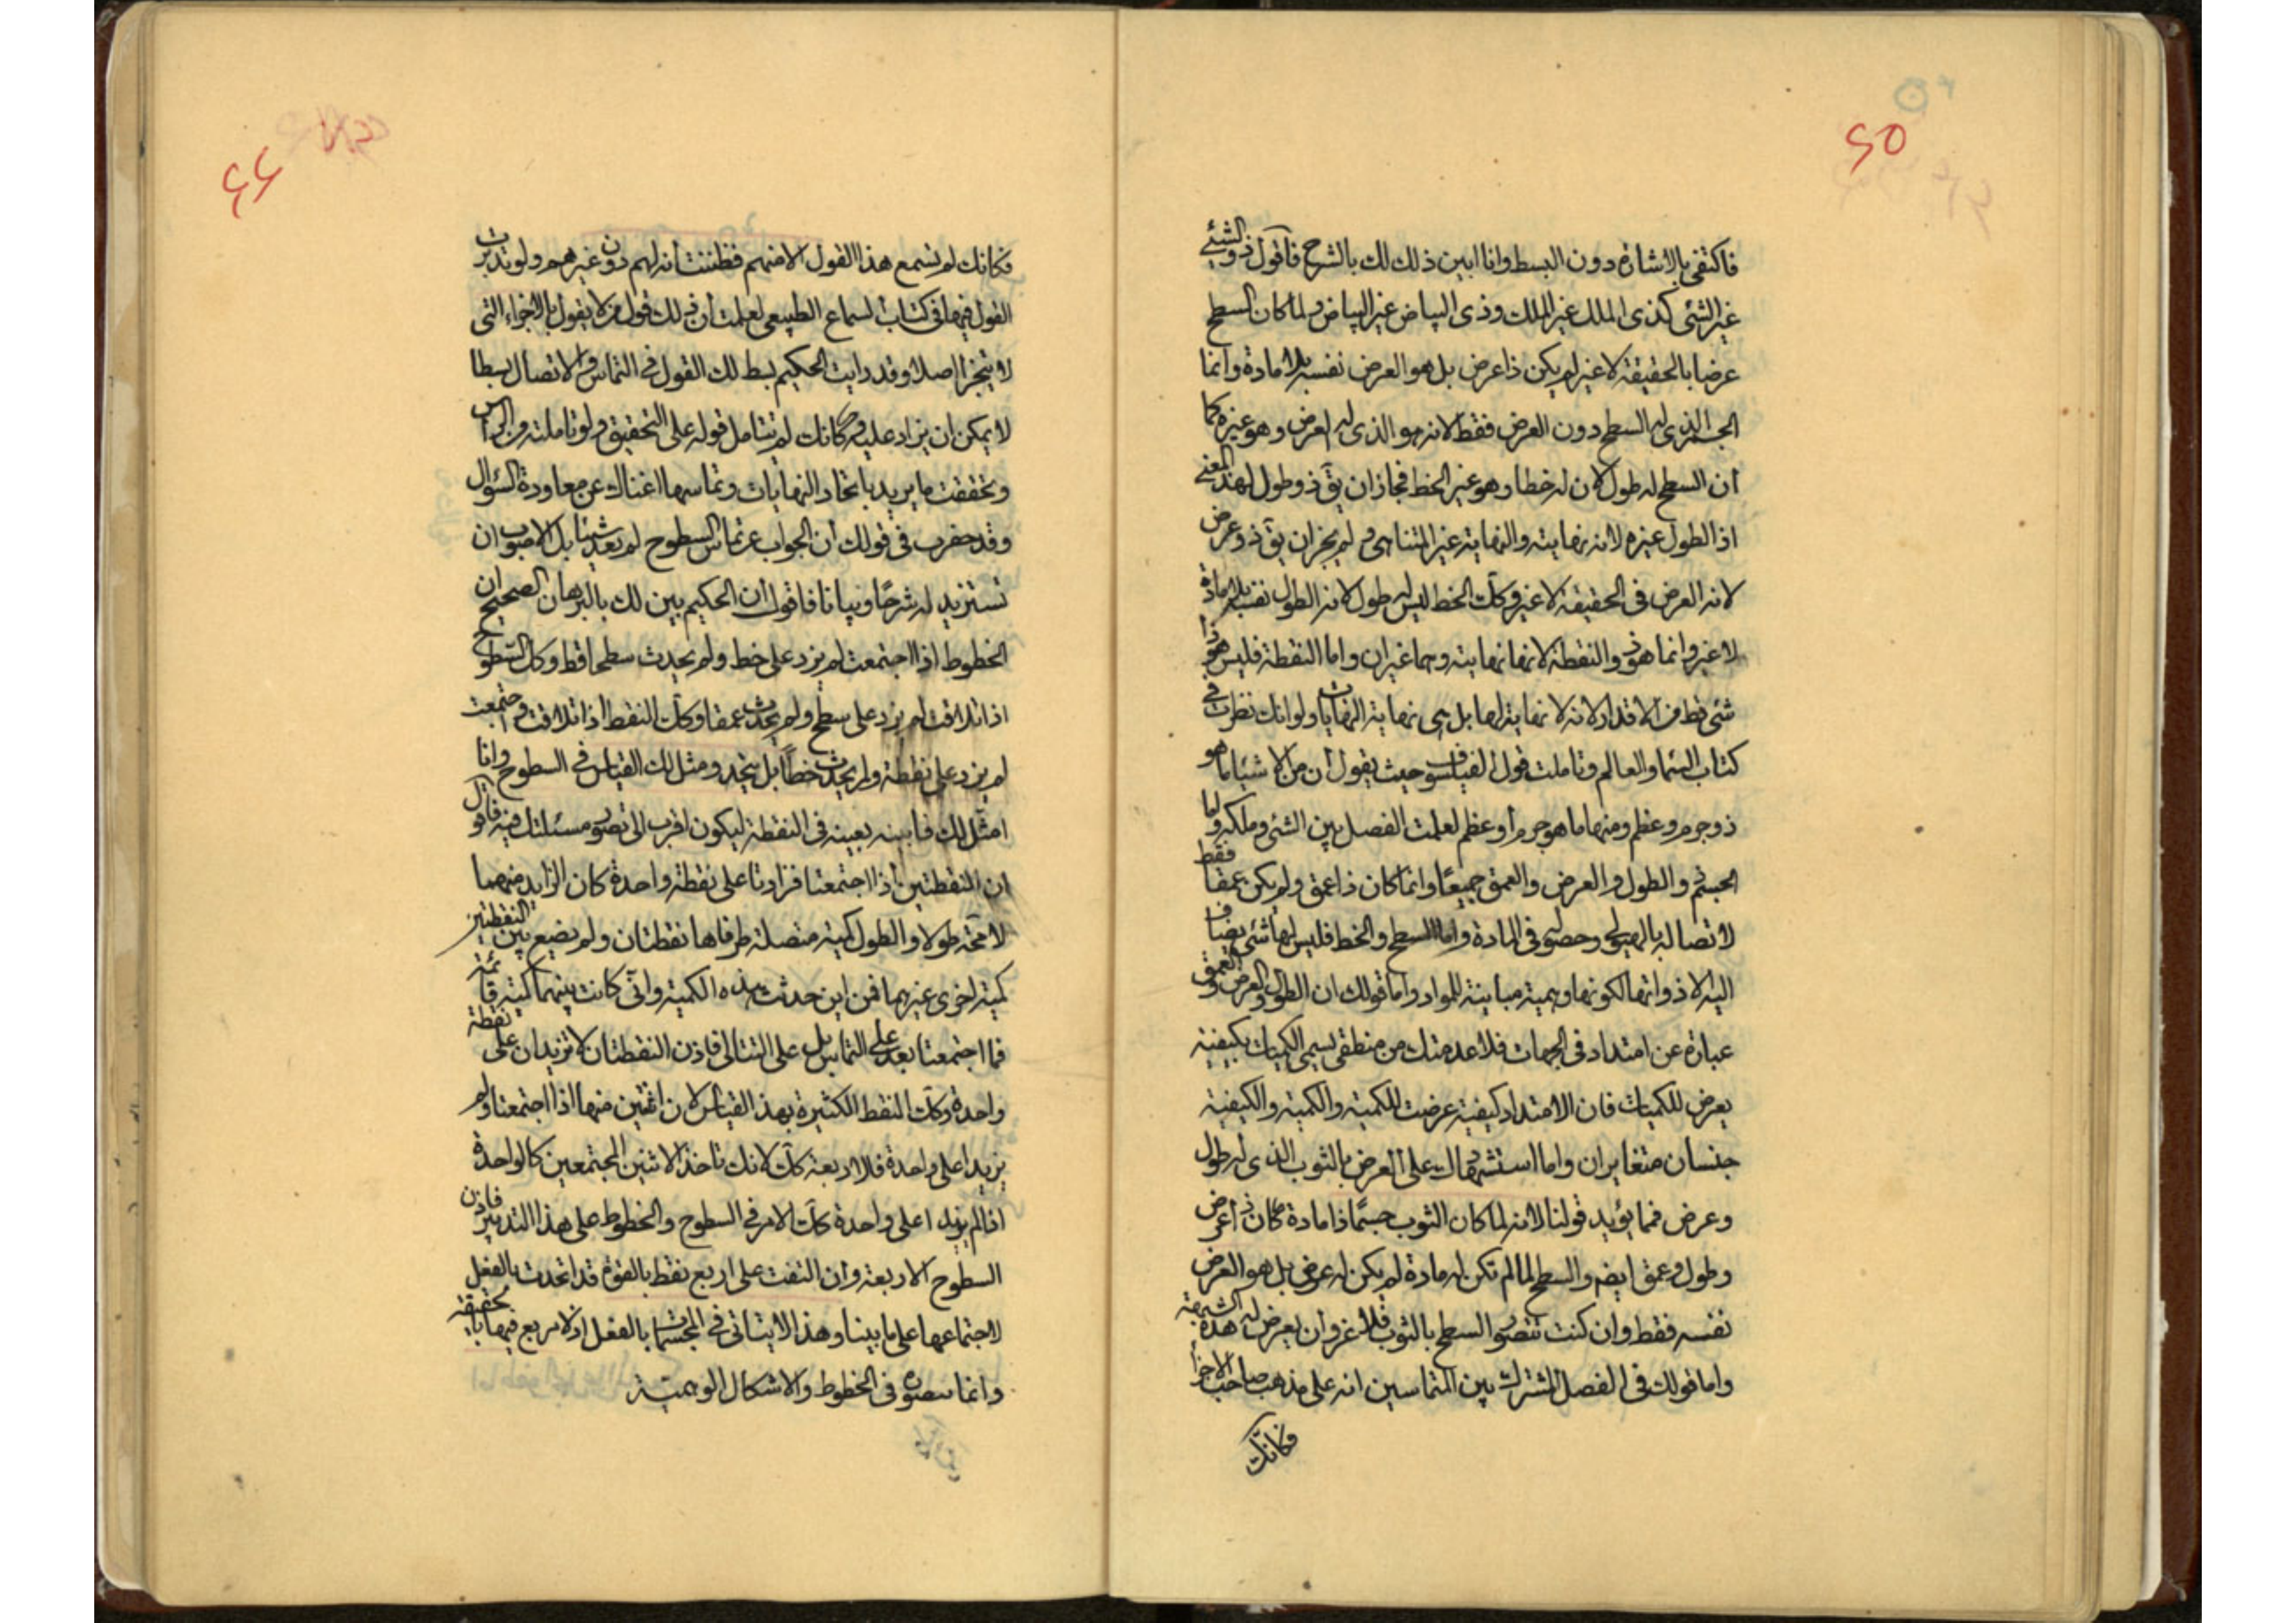 ٦٥
فاكتفى بالاشارة دون البسط وانا ابين ذلك لك بالشرح فاقول ذو الشئ
غير الشئ كذى الملك غير الملك وذى البياض غير البياض ولما كان السطح
عرضا بالحقيقة لا غير لم يكن ذا عرض بل هو العرض نفسه بلا مادة وانما
الجسم الذى له السطح دون العرض فقط لانه هو الذى له العرض وهو غيره كما
ان السطح له طول لان له خطا وهو غير الخط فجاز ان يق ذو طول لهذا المعنى
اذ الطول غيره لانه نهايته والنهاية غير المتناهى ولم يجز ان يق ذو عرض
لانه العرض فى الحقيقة لا غير وكك الخط ليس له طول لانه الطول نفسه بلا مادة
لا غير وانما هو ذو النقطة لانها نهايته وهما غيران واما النقطة فليس هو ذا
شئ قط من الاقدار لانه لا نهاية لها بل هى نهاية النهايات ولو انك نظرت فى
كتاب السما والعالم وتاملت قول الفيلسوف حيث يقول ان من الاشيا ما هو
ذو جرم وعظم ومنها ما هو جرم او عظم لعلمت الفصل بين الشئ وملكه ولما
الجسم ذو الطول والعرض والعمق جميعًا وانما كان ذا عمق ولم يكن عمقا فقط
لاتصاله بالهيولى وحصوله فى المادة واما السطح والخط فليس لها شئ يضاف
اليه الا ذواتها لكونها وهمية مباينة للمواد واما قولك ان الطول والعرض والعمق
عبارة عن امتداد فى الجهات فلا عدمتك من منطقى يسمى الكميات بكيفية
يعرض للكميات فان الامتداد كيفية عرضت للكمية والكمية والكيفية
جنسان متغايران واما استشهادك على العرض بالثوب الذى له طول
وعرض فمما يؤيد قولنا لانه لما كان الثوب جسمًا ذا مادة كان ذا عرض
وطول وعمق ايضم والسطح لما لم تكن له مادة لم يكن له عرض بل هو العرض
نفسه فقط وان كنت تتصور السطح بالثوب فلا غرو ان يعرض له هذه الشبهة
واما قولك فى الفصل المشترك بين المتماسين انه على مذهب صاحب الاجزا
فكانك
٦٦
فكانك لم تسمع هذا القول الا منهم فظننت انه لهم دون غيرهم ولو تدبرت
القول فيها فى كتاب السماع الطبيعى لعلمت ان ذلك قول من لا يقول بالاجزاء التى
لا يتجزا اصلا وقد رايت الحكيم بسط لك القول فى التماس والاتصال بسطا
لا يمكن ان يزاد عليه وكانك لم تتامل قوله على التحقيق ولو تاملته
وتحققت ما يريد باتحاد النهايات وتماسها اغناك عن معاودة السؤال
وقد فى قولك ان الجواب عن تماس السطوح لم يعد شيئا بل الاصوب ان
تستزيد له شرحًا وبيانا فاقول ان الحكيم بين لك بالبرهان الصحيح ان
الخطوط اذا اجتمعت لم يزد على خط ولم يحدث سطحا قط وكك السطوح
اذا تلاقت لم يزد على سطح ولم يحدث عمقا وكك النقط اذا تلاقت واجتمعت
لم يزد على نقطة ولم يحدث خطًا بل يتحد ومثل لك القياس فى السطوح وانا
امثل لك فابينه بعينه فى النقطة ليكون اقرب الى تصور مسئلتك فيه فاقول
ان النقطتين اذا اجتمعتا فزادتا على نقطة واحدة كان الزايد منهما
لا محة طولا والطول كمية متصلة طرفاها نقطتان ولم نضع بين النقطتين
كمية اخرى غيرهما فمن اين حدثت هذه الكمية وان كانت بينهما كمية قائمة
فما اجتمعتا بعد على التماس بل على التتالى فاذن النقطتان لا تزيدان على نقطة
واحدة وكك النقط الكثيرة بهذ القياس لان اثنتين منها اذا اجتمعتا ولم
يزيدا على واحدة فلاربعة كك لانك تاخذ الاثنين المجتمعين كالواحدة
اذا لم يزيدا على واحدة كك الامر فى السطوح والخطوط على هذا التدبير فاذن
السطوح الاربعة وان التفت على اربع نقط بالقوة قد اتحدت بالفعل
لاجتماعها على ما بينا وهذا لا يتاتى فى المجسمات بالفعل اذ لا مربع فيها بالحقيقة
وانما يتصور فى الخطوط والاشكال الوهمية